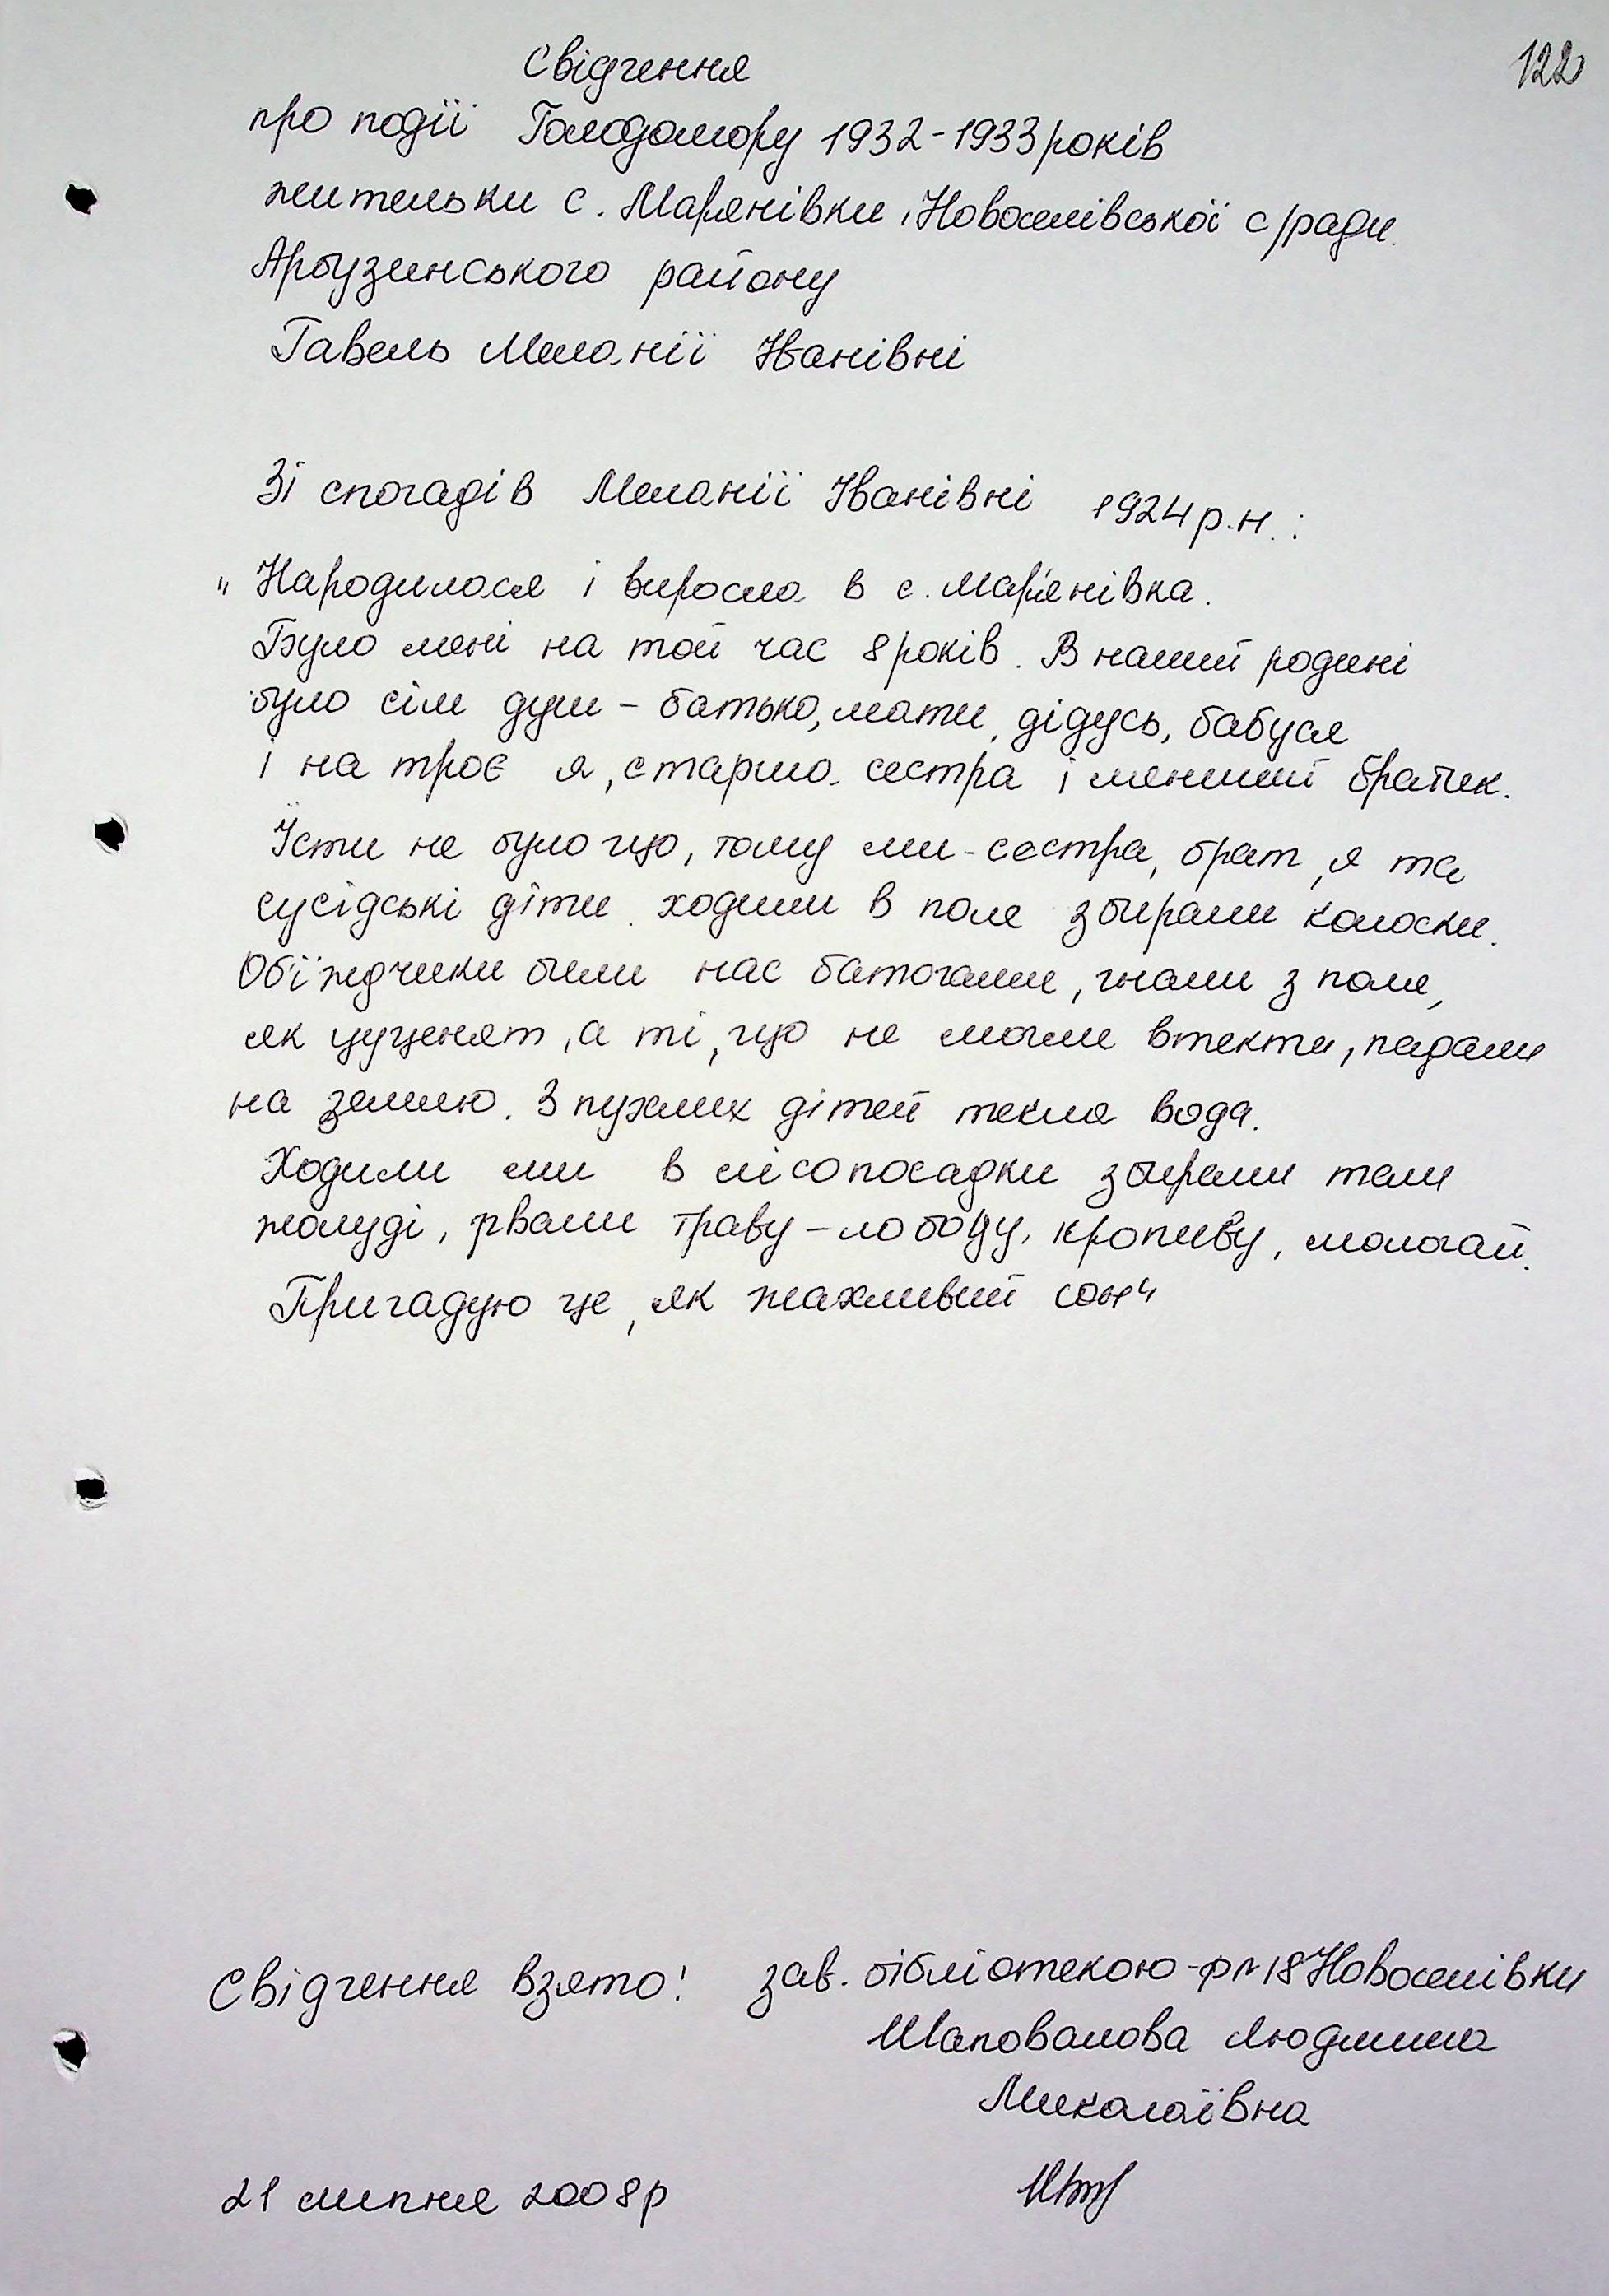 122
Свідчення
про події Голодомору 1932-1933 років
жительки с. Мар'янівки, Новоселівської с/ради
Арбузинського району
Гавель Меланії Іванівні
Зі спогадів Меланії Іванівні 1924 р.н.:
„Народилася і виросла в с. Мар'янівка.
Було мені на той час 8 років. В нашій родині
було сім душ – батько, мати, дідусь, бабуся
і на троє я, старша сестра і менший братик.
Їсти не було що, тому ми - сестра, брат, я та
сусідські діти ходили в поле збирали колоски.
Обїждчики били нас батогами, гнали з поля,
як цуценят, а ті, що не могли втекти, падали
на землю. З пухлих дітей текла вода.
Ходили ми в лісопосадки збирали там
жолуді, рвали траву – лободу, кропиву, молочай.
Пригадую це, як жахливий сон"
Свідчення взято! зав. бібліотекою-ф №18 Новоселівки
Шаповалова Людмила
Миколаївна
21 липня 2008р